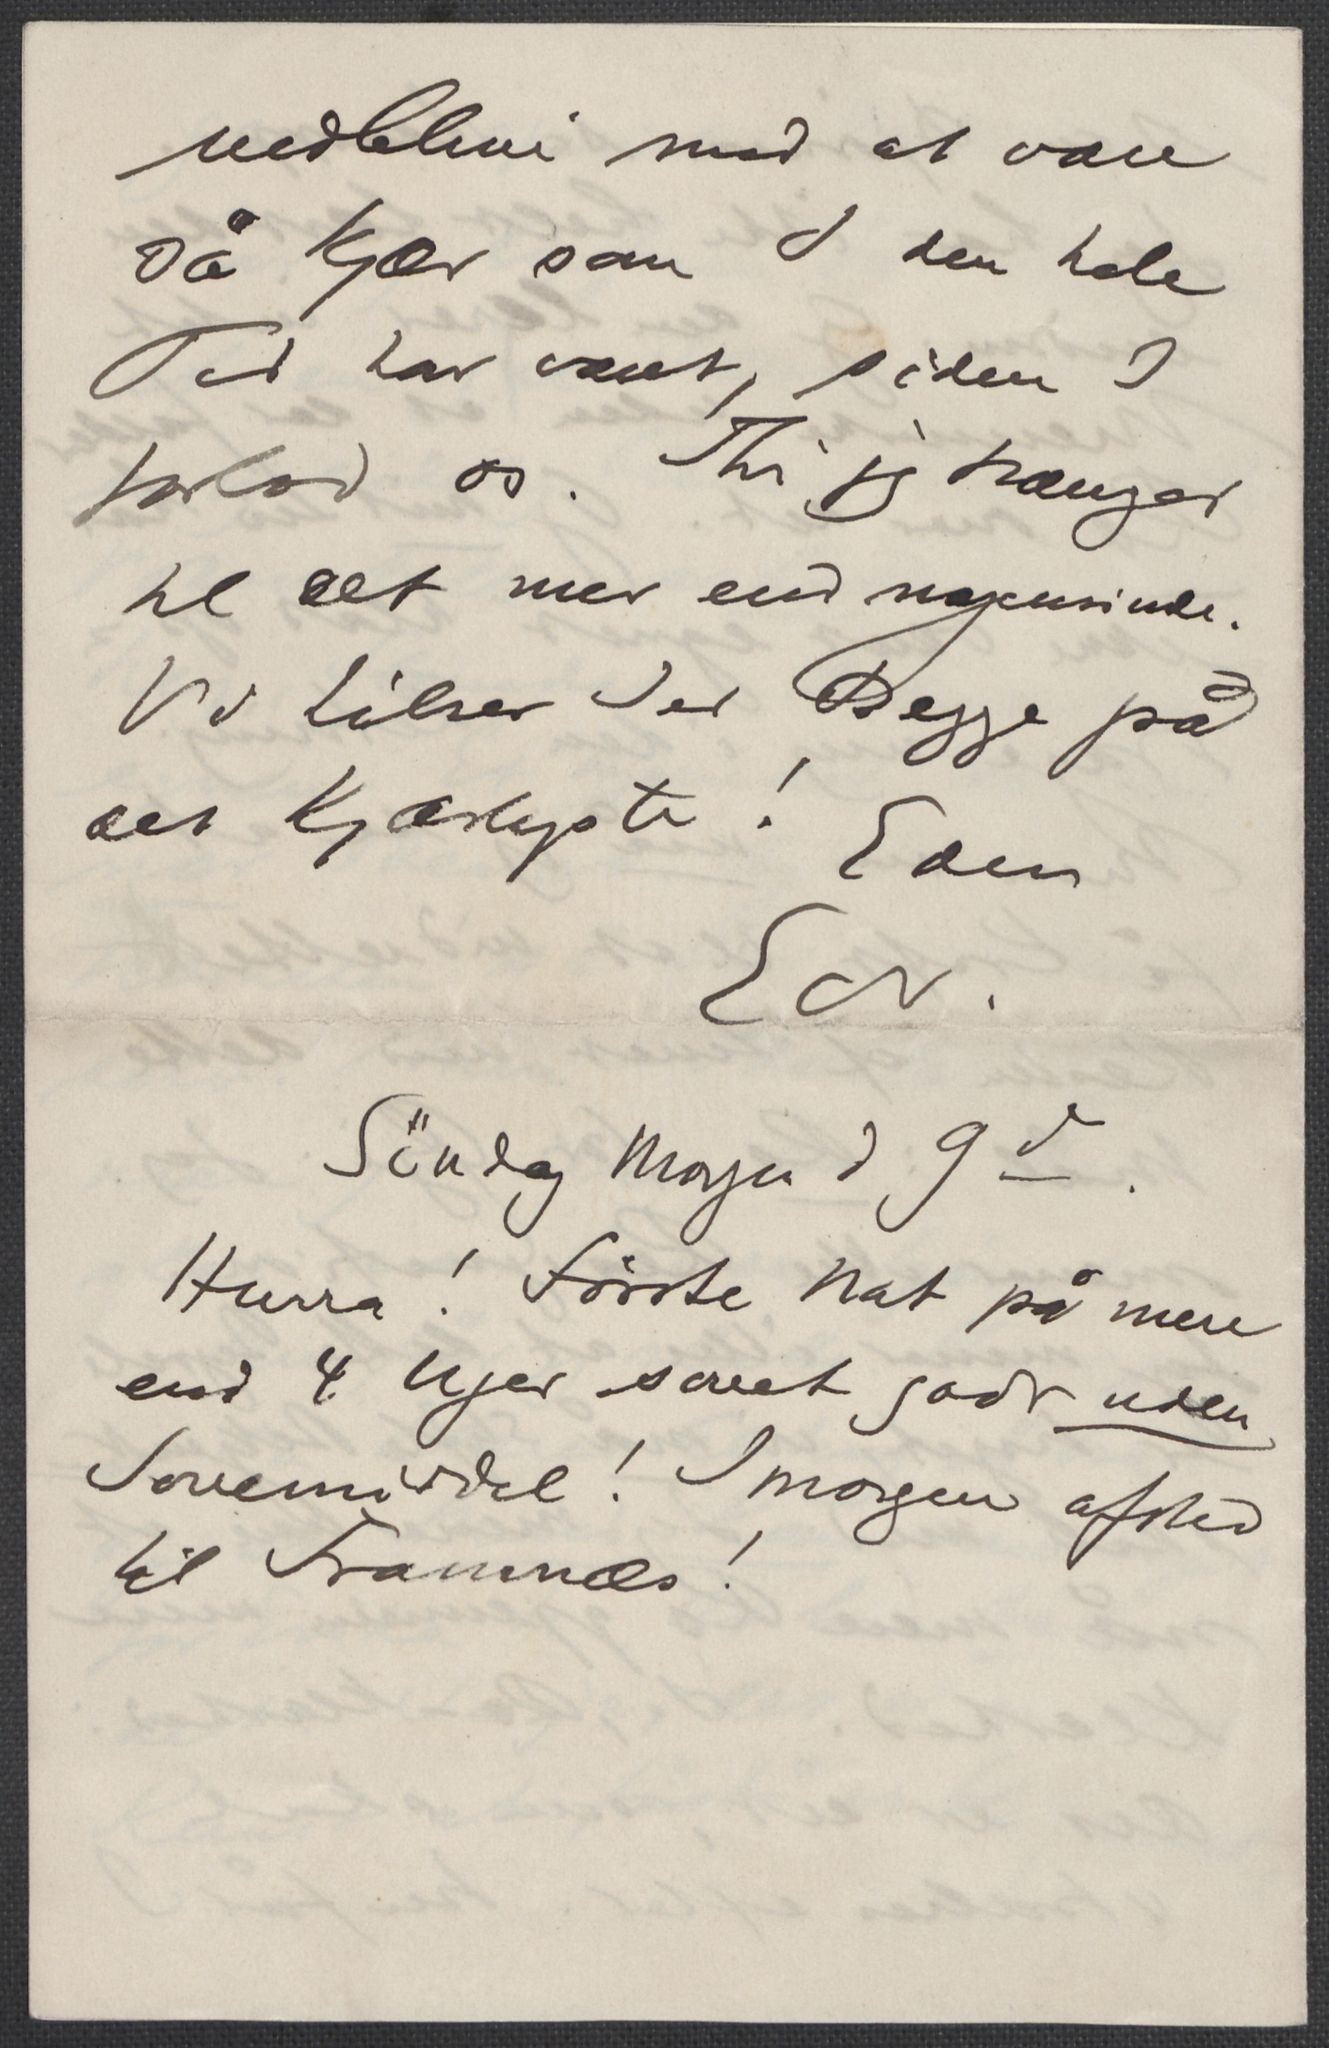 vedblive med at være
så kjær som I den hele
Tid har været, siden I
forlod os. Thi jeg trænger
til det mer end nogensinde.
Vi hilser Jer Begge på
det kjærligste! Eders
Edv.
Söndag Morgen d 9de.
Hurra! Förste Nat på mere
end 4 Uger sovet godt uden
Sovemiddel! Imorgen afsted
til Framnæs!